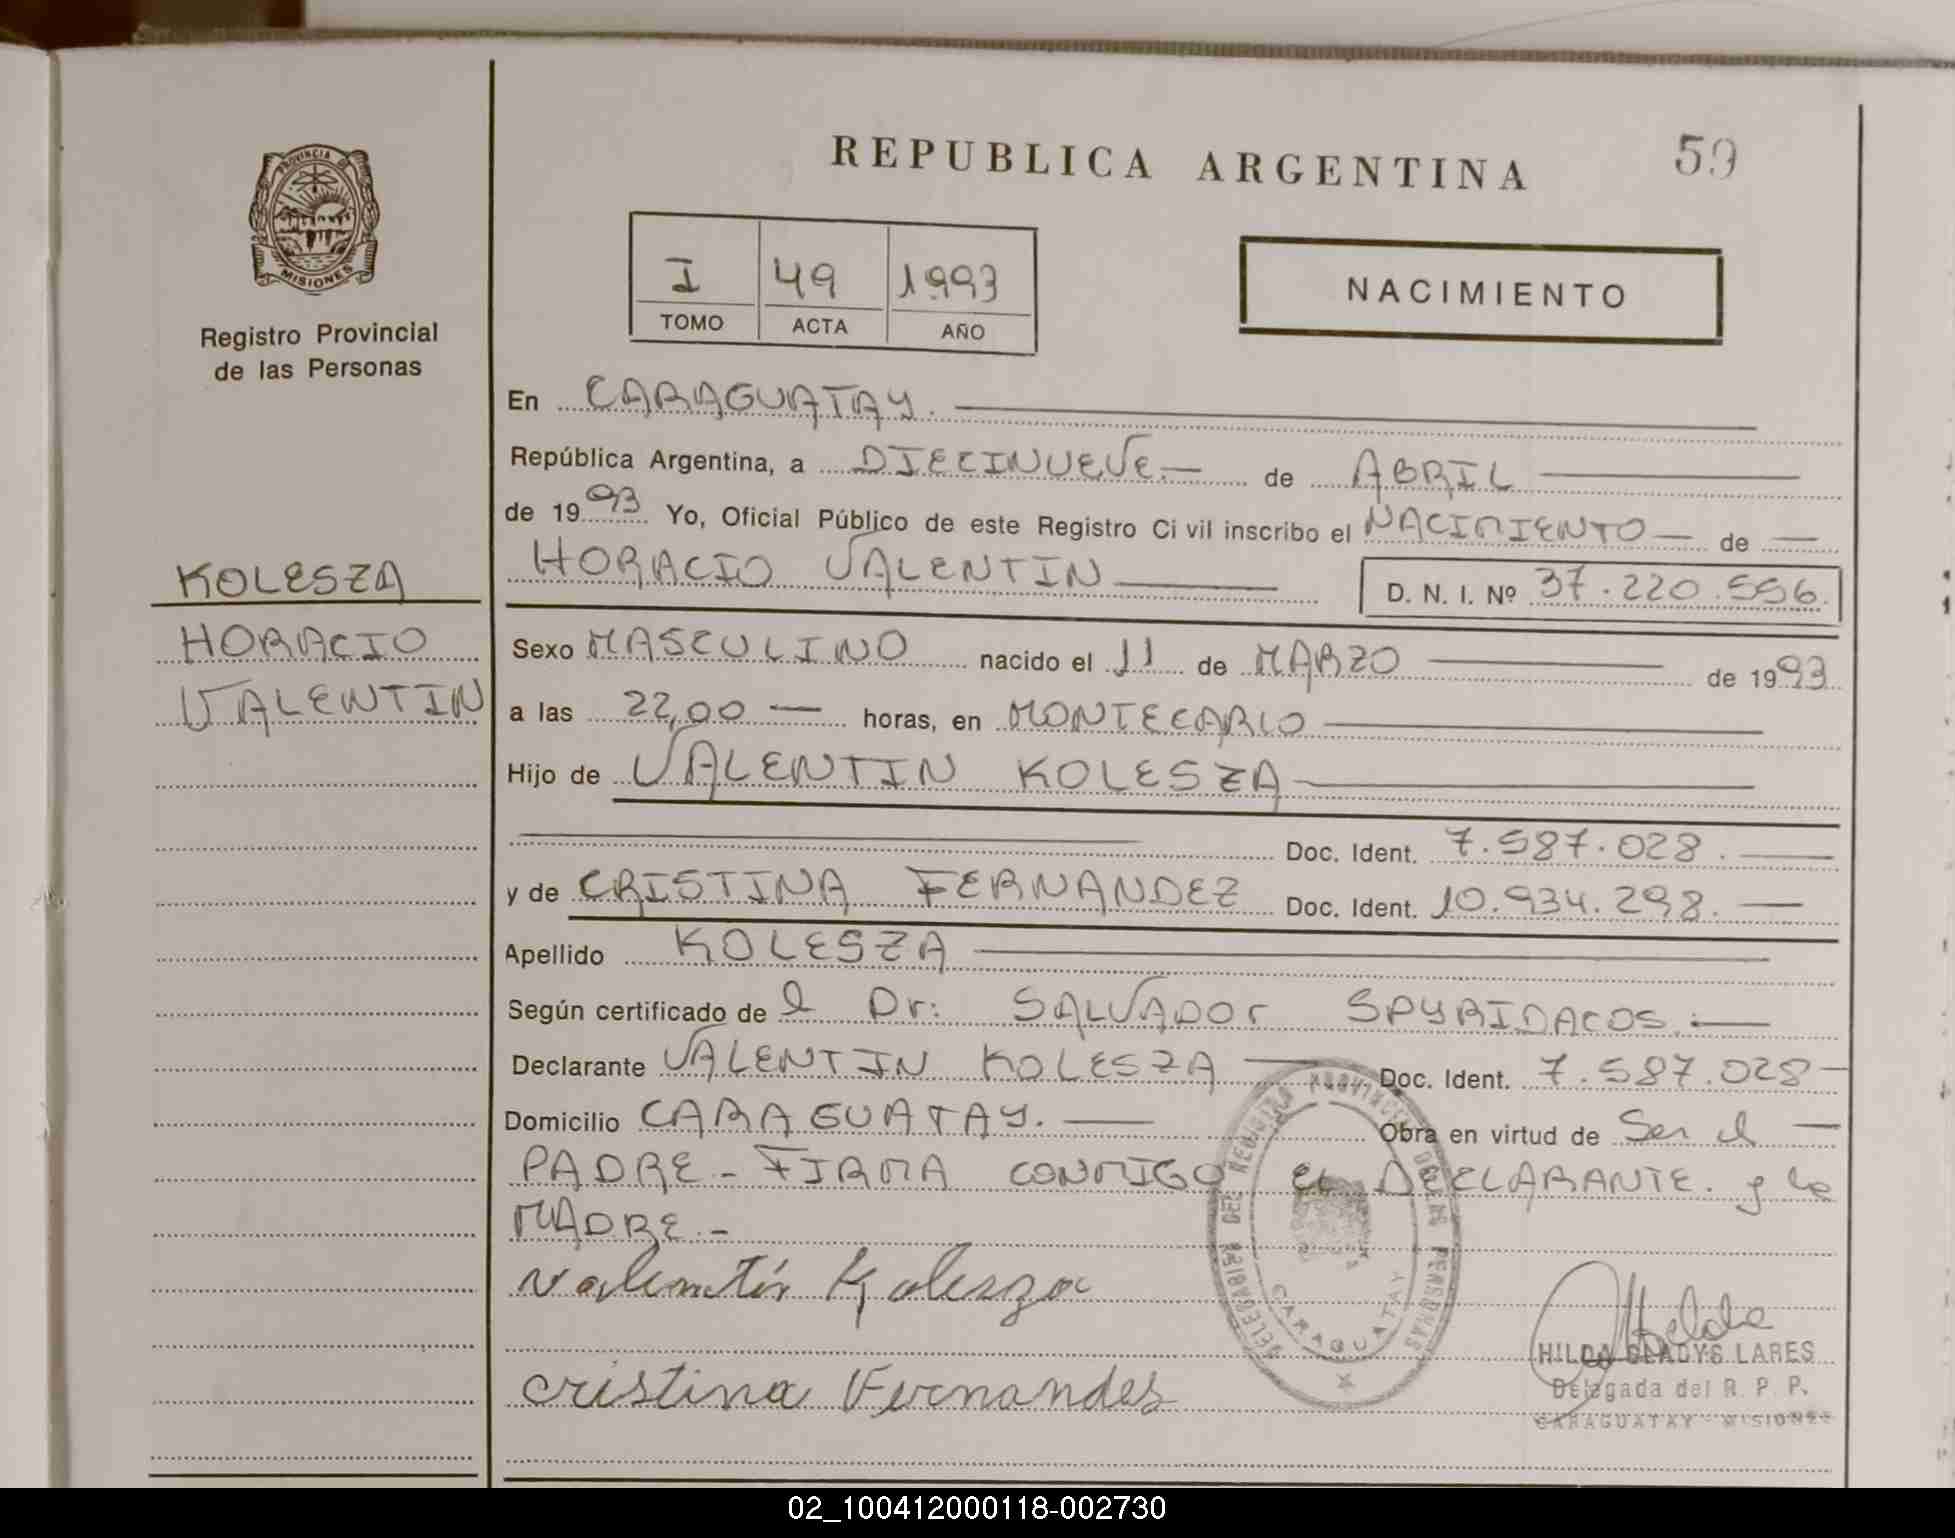 REPUBLICA ARGENTINA
59
PROVINCIA DE
MISIONES
Registro Provincial
de las Personas
I 49 1993
TOMO ACTA AÑO
NACIMIENTO
En CARAGUATAY.
República Argentina, a DIECINUEVE.— de ABRIL
de 1993 Yo, Oficial Público de este Registro Ci vil inscribo el NACIMIENTO — de —
HORACIO VALENTIN D. N. I. Nº 37.220.556.
KOLESZA
HORACIO
VALENTIN
Sexo MASCULINO nacido el 11 de MARZO de 1993
a las 22,00 — horas, en MONTECARLO
Hijo de VALENTIN KOLESZA
Doc. Ident. 7.587.028.
y de CRISTINA FERNANDEZ Doc. Ident. 10.934.298.
Apellido KOLESZA
Según certificado de l Dr: SALVADOr SPYRIDACOS.
Declarante VALENTIN KOLESZA Doc. Ident. 7.587.028
Domicilio CARAGUATAY. Obra en virtud de Ser el
PADRE - FIRMA CONMIGO EL DECLARANTE. y la
MADRE.-
Valentín Kolesza
Cristina Fernandes
DELEGACION DEL REGISTRO PROVINCIAL DE LAS PERSONAS
CARAGUATAY
Hilda
HILDA GLADYS LARES
Delegada del R. P. P.
CARAGUATAY MISIONES
02_100412000118-002730